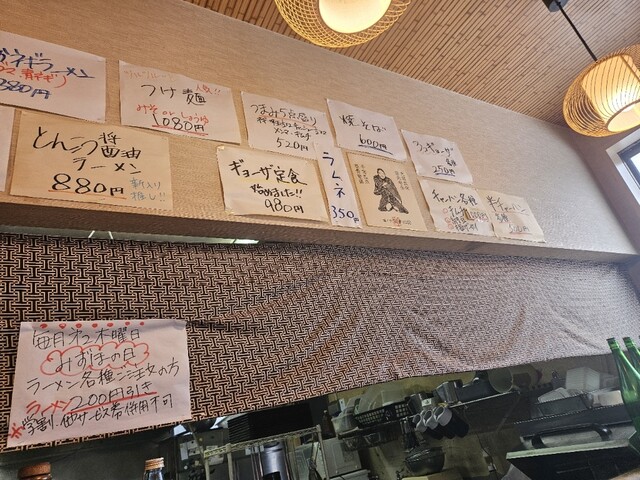 ネギラーメン
880円
つけ麺
人気!!
みそ or しょうゆ
1080円
つまみ5点盛り
メンマ・キムチ
520円
焼そば
600円
250円
とんこつ醤油
ラーメン
880円
新入り
推し!!
ギョーザ定食
始めました!!
980円
ラムネ
350円
チャーハン各種
半チャーハン
毎月第2木曜日
みずほの日
ラーメン各種ご注文の方
ラーメン200円引き
※学割、他サービス券併用不可